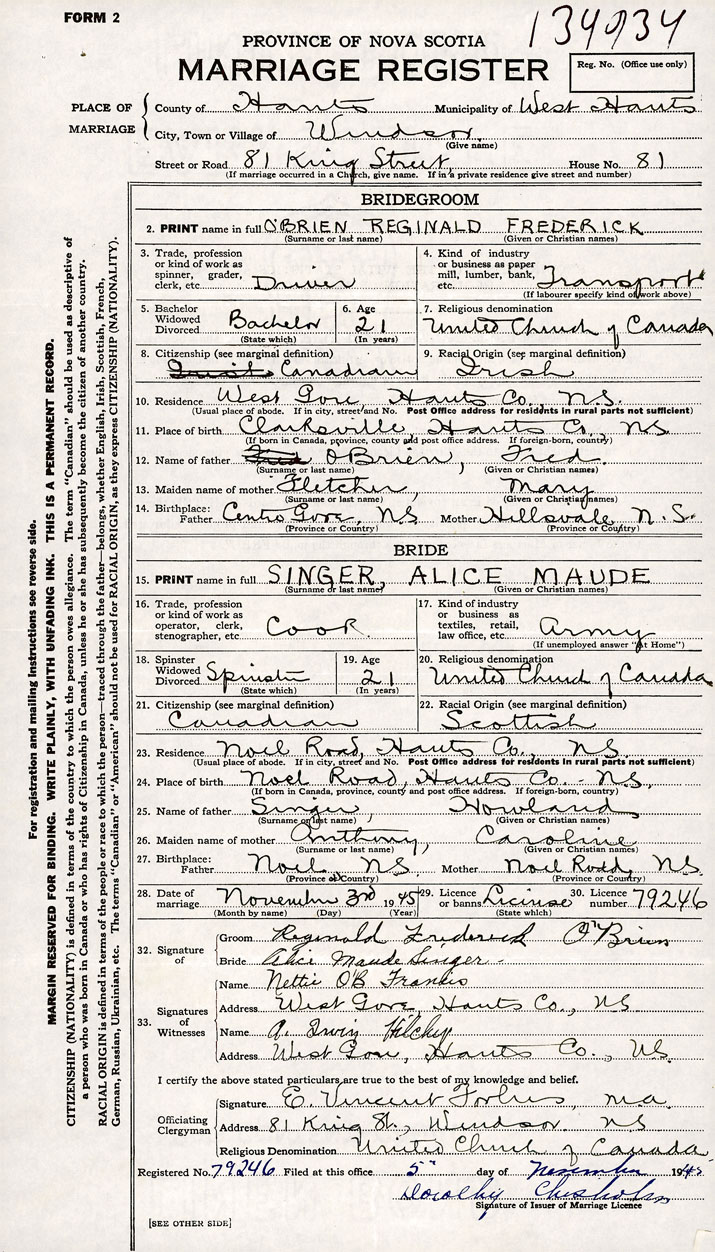 FORM 2
134934
PROVINCE OF NOVA SCOTIA
MARRIAGE REGISTER
Reg. No. (Office use only)
PLACE OF MARRIAGE
County of Hants Municipality of West Hants
City, Town or Village of Windsor
(Give name)
Street or Road 81 King Street House No. 81
(If marriage occurred in a Church, give name. If in a private residence give street and number)
BRIDEGROOM
2. PRINT name in full O'BRIEN REGINALD FREDERICK
(Surname or last name) (Given or Christian names)
3. Trade, profession or kind of work as spinner, grader, clerk, etc. Driver
4. Kind of industry or business as paper mill, lumber, bank, etc. Transport
(If labourer specify kind of work above)
5. Bachelor Widowed Divorced Bachelor
(State which)
6. Age 21
(In years)
7. Religious denomination
United Church of Canada
8. Citizenship (see marginal definition)
Irish Canadian
9. Racial Origin (see marginal definition)
Irish
10. Residence West Gore, Hants Co., N.S.
(Usual place of abode. If in city, street and No. Post Office address for residents in rural parts not sufficient)
11. Place of birth Clarksville, Hants Co., N.S.
(If born in Canada, province, county and post office address. If foreign-born, country)
12. Name of father Fred O'Brien, Fred.
(Surname or last name) (Given or Christian names)
13. Maiden name of mother Fletcher, Mary
(Surname or last name) (Given or Christian names)
14. Birthplace: Father Centre Gore, N.S. Mother Hillsvale, N.S.
(Province or Country) (Province or Country)
BRIDE
15. PRINT name in full SINGER, ALICE MAUDE
(Surname or last name) (Given or Christian names)
16. Trade, profession or kind of work as operator, clerk, stenographer, etc. Cook
17. Kind of industry or business as textiles, retail, law office, etc. Army
(If unemployed answer "At Home")
18. Spinster Widowed Divorced Spinster
(State which)
19. Age 21
(In years)
20. Religious denomination
United Church of Canada
21. Citizenship (see marginal definition)
Canadian
22. Racial Origin (see marginal definition)
Scottish
23. Residence Noel Road, Hants Co., N.S.
(Usual place of abode. If in city, street and No. Post Office address for residents in rural parts not sufficient)
24. Place of birth Noel Road, Hants Co. N.S.
(If born in Canada, province, county and post office address. If foreign-born, country)
25. Name of father Singer, Howland
(Surname or last name) (Given or Christian names)
26. Maiden name of mother Anthony, Caroline
(Surname or last name) (Given or Christian names)
27. Birthplace: Father Noel, N.S. Mother Noel Road, N.S.
(Province or Country) (Province or Country)
28. Date of marriage November 3rd 1945
(Month by name) (Day) (Year)
29. Licence or banns License
(State which)
30. Licence number 79246
32. Signature of
Groom Reginald Frederick O'Brien
Bride Alice Maude Singer
33. Signatures of Witnesses
Name Nettie O'B Francis
Address West Gore, Hants Co., N.S.
Name A. Irwin Hilchey
Address West Gore, Hants Co., N.S.
I certify the above stated particulars are true to the best of my knowledge and belief.
Officiating Clergyman
Signature E. Vincent Forbes, M.A.
Address 81 King St., Windsor N.S
Religious Denomination United Church of Canada
Registered No. 79246 Filed at this office 5th day of November 1945
Dorothy Chisholm
Signature of Issuer of Marriage Licence
[SEE OTHER SIDE]
For registration and mailing instructions see reverse side.
MARGIN RESERVED FOR BINDING. WRITE PLAINLY, WITH UNFADING INK. THIS IS A PERMANENT RECORD.
CITIZENSHIP (NATIONALITY) is defined in terms of the country to which the person owes allegiance. The term "Canadian" should be used as descriptive of
a person who was born in Canada or who has rights of Citizenship in Canada, unless he or she has subsequently become the citizen of another country.
RACIAL ORIGIN is defined in terms of the people or race to which the person—traced through the father—belongs, whether English, Irish, Scottish, French,
German, Russian, Ukrainian, etc. The terms "Canadian" or "American" should not be used for RACIAL ORIGIN, as they express CITIZENSHIP (NATIONALITY).